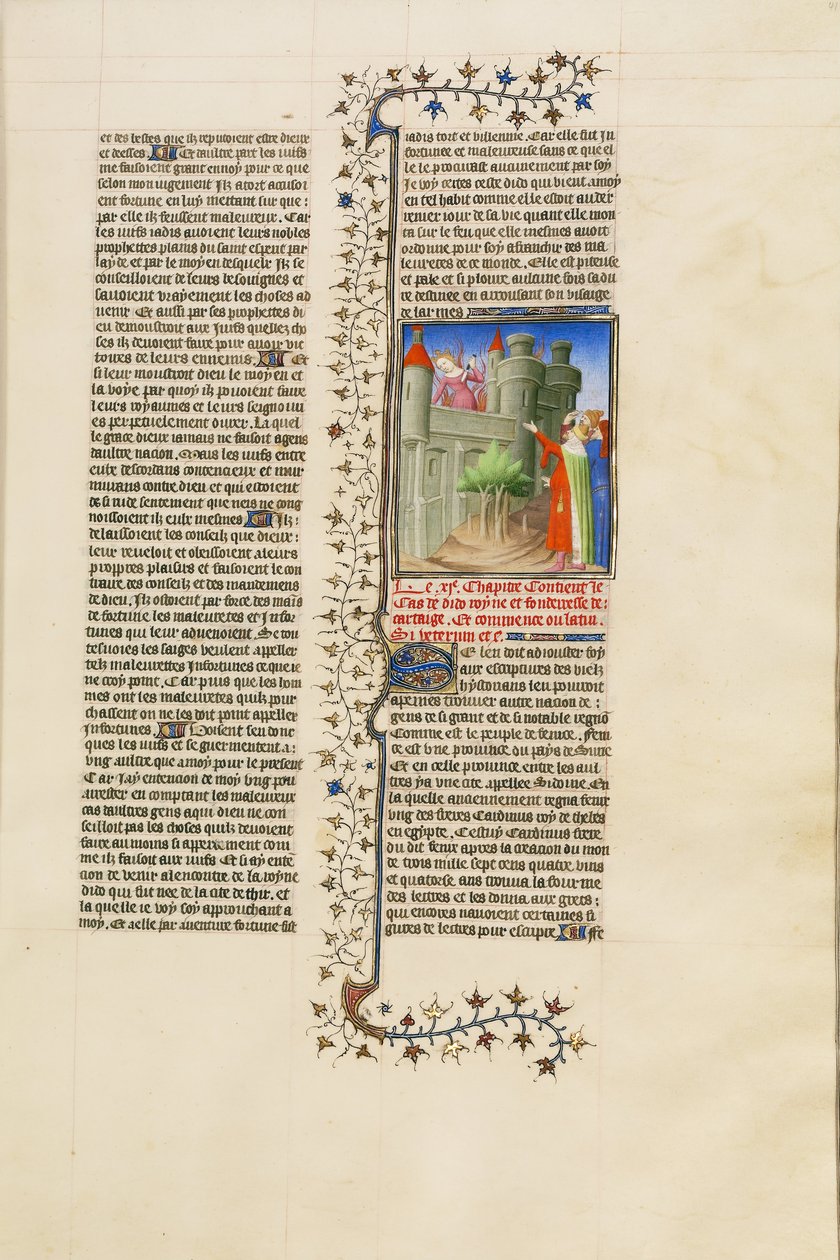 et des bestes que ilz reputoient estre dieux
et deesses. Et daultre part les iuifs
me faisoient grant ennoy pour ce que
selon mon iugement Ilz a tort accusoi
ent fortune en luy mettant sur que :
par elle ilz feussent maleureux. Car
les iuifs iadis auoient leurs nobles
prophettes plains du saint esperit par
layde et par le moyen desquelz Ilz se
conseilloient de leurs besoingnes et
sauoient vrayement les choses ad
uenir Et aussi par ses prophettes di
eu demoustroit aux Juifs quelles cho
ses ilz deuoient faire pour auoir vic
toires de leurs ennemis. Et
si leur moustroit dieu le moyen et
la voye par quoy ilz pouoient faire
leurs royaumes et leurs seignouri
es perpetuelement durer. La quel
le grace dieux iamais ne faisoit a gens
daultre nacion. Mais les iuifs entre
eulx descordans contencieux et mur
murans contre dieu et qui estoient
de si rude sentement que neis ne cong
noissoient ilz eulx mesmes Ilz :
delaissoient les conseilz que dieux :
leur reueloit et obeissoient a leurs
propres plaisirs et faisoient le con
traire des conseilz et des mandemens
de dieu. Ilz ostoient par force des mains
de fortune les maleuretes et Infor
tunes qui leur aduenoient. Se tou
tesuoies les saiges veulent appeller
telz maleurettes Infortunes ce que ie
ne croy point. Car puis que les hom
mes ont les maleuretes quilz pour
chassent on ne les doit point appeller
Infortunes. Voisent sen donc
ques les iuifs et se guermentent a :
vng aultre que a moy pour le present
Car Jay entencion de moy vng pou
arrester en comptant les maleureux
cas daultres gens a qui dieu ne con
seilloit pas les choses quilz deuoient
faire au moins si appertement com
me il faisoit aux iuifs Et si ay enten
cion de venir alencontre de la royne
dido qui fut nee de la cite de thir. et
la quelle ie voy soy approuchant a
moy. Et a elle par auenture fortune fist
iadis tort et villennie. Car elle fut In
fortunee et maleureuse sans ce que el
le le procurast aucunement par soy
Je voy certes ceste dido qui vient a moy
en tel habit comme elle estoit au der
renier iour de sa vie quant elle mon
ta sur le feu que elle mesmes auoit
ordonne pour soy affranchir des ma
leuretes de ce monde. Elle est piteuse
et pale et si ploure aulcune fois sa du
re destinee en arrousant son visaige
de larmes
Le .xie. Chapitre Contient le
Cas de dido royne et fonderesse de :
cartaige. Et commence ou latin.
Si veterum etc.
Se len doit adiouster foy
aux escriptures des vielz
hystorians len pourroit
a peines trouuer autre nacion de :
gens de si grant et de si notable regno
Comme est le peuple de fenice. Feni
ce est vne prouince du pays de Surie
Et en celle prouince entre les aul
tres y a vne cite appellee Sidoine. En
la quelle anciennement regna fenix
vng des freres Cardinus roy de thebes
en egypte. Cestuy Cardinus frere
du dit fenix apres la creacion du mon
de trois mille sept cens quatre vins
et quatorse ans trouua la fourme
des lectres et les donna aux grecs :
qui encores nauoient certaines fi
gures de lectres pour escripre Fe